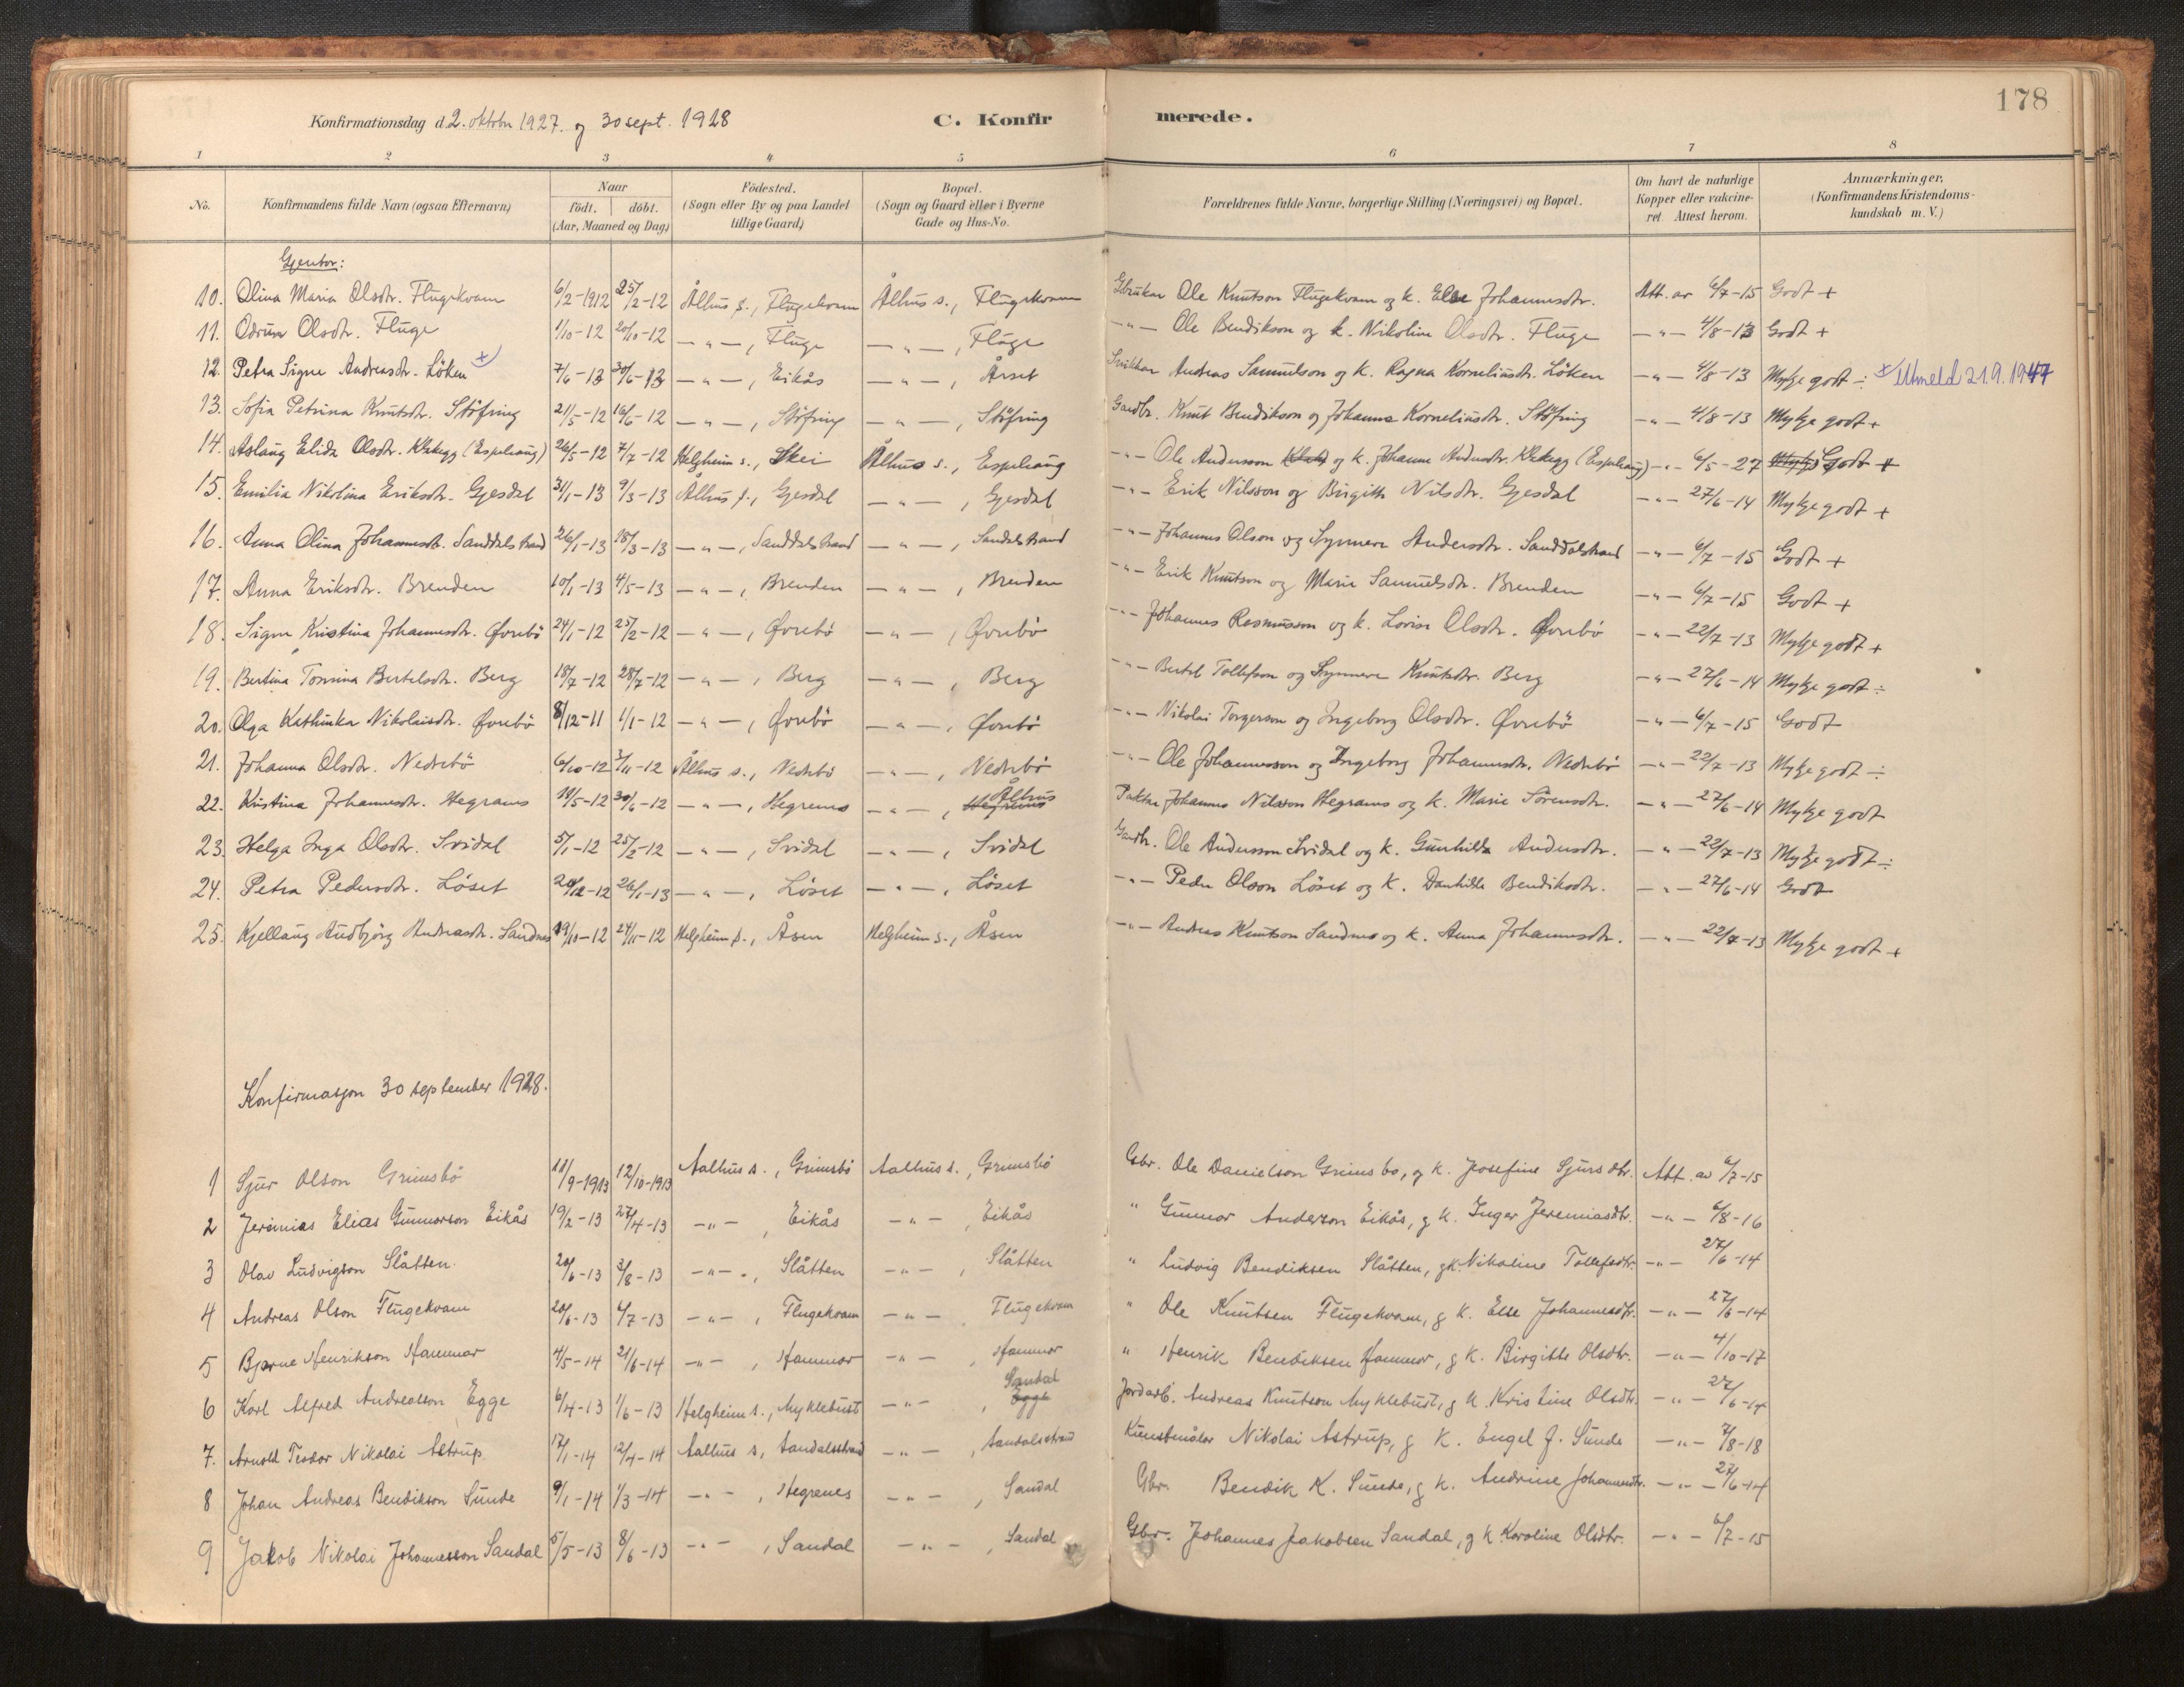 178
Konfirmationsdag d. 2. oktober 1927. og 30 sept. 1928
C. Konfirmerede.
1 2 3 4 5 6 7 8
No. Konfirmandens fulde Navn (ogsaa Efternavn) Naar födt. döbt. (Aar, Maaned og Dag) Födested. (Sogn eller By og paa Landet tillige Gaard) Bopæl. (Sogn og Gaard eller i Byerne Gade og Hus-No. Forældrenes fulde Navne, borgerlige Stilling (Næringsvei) og Bopæl. Om havt de naturlige Kopper eller vakcineret. Attest herom. Anmærkninger. (Konfirmandens Kristendomskundskab m. V.)
Gjentor:
10. Olina Maria Olsdtr. Flugekvam 6/2-1912 25/2-12 Ålhus s., Flugekvam Ålhus s., Flugekvam Gbrukar Ole Knutson Flugekvam og k. Else Johannesdtr. Att. av 6/7-15 Godt +
11. Odrun Olsdtr. Fluge 1/10-12 20/10-12 —"—, Fluge —"—, Fluge —"— Ole Bendikson og k. Nikoline Olsdtr. Fluge —"— 4/8-13 Godt +
12. Petra Signe Andreasdtr. Löken x) 7/6-13 30/6-13 —"—, Eikås —"—, Årset Andreas Samuelson og k. Ragna Korneliusdtr. Löken —"— 4/8-13 Mykje godt ÷ x) Utmeld 21.9.1947
13. Sofia Petrina Knutsdtr. Stöfring 21/5-12 16/6-12 —"—, Stöfring —"—, Stöfring Gardbr. Knut Bendikson og Johanna Korneliusdtr. Stöfring —"— 4/8-13 Mykje godt +
14. Aslaug Elida Olsdtr. Klakegg (Espelaug) 26/5-12 7/7-12 Helgheim s., Skei Ålhus s., Espelaug —"— Ole Andersson og k. Johanne Andersdtr. Klakegg (Espelaug) —"— 6/5-27 Mykje Godt +
15. Emilia Nikolina Eriksdtr. Gjesdal 31/1-13 9/3-13 Ålhus s., Gjesdal —"—, Gjesdal —"— Erik Nilsson og Birgitte Nilsdtr. Gjesdal —"— 27/6-14 Mykje godt +
16. Anna Olina Johannesdtr. Sanddalstrand 26/1-13 18/3-13 —"—, Sanddalstrand —"—, Sandalstrand —"— Johannes Olson og Synneve Andersdtr. Sanddalstrand —"— 6/7-15 Godt +
17. Anna Eriksdtr. Brenden 10/1-13 4/5-13 —"—, Brenden —"—, Brenden —"— Erik Knutson og Marie Samuelsdtr. Brenden —"— 6/7-15 Godt +
18. Signe Kristina Johannesdtr. Øvrebö 24/1-12 25/2-12 —"—, Øvrebö —"—, Øvrebö —"— Johannes Rasmusson og k. Lovise Olsdtr. Øvrebö —"— 22/7-13 Mykje godt +
19. Bertina Tomina Bertelsdtr. Berg 18/7-12 28/7-12 —"—, Berg —"—, Berg —"— Bertel Tollefson og Synneve Knutsdtr. Berg —"— 27/6-14 Mykje godt ÷
20. Olga Kathinka Nikolaisdtr. Øvrebö 8/12-11 1/1-12 —"—, Øvrebö —"—, Øvrebö —"— Nikolai Torgerson og Ingeborg Olsdtr. Øvrebö —"— 6/7-15 Godt
21. Johanna Olsdtr. Nedrebö 6/10-12 3/11-12 Ålhus s., Nedrebö —"—, Nedrebö —"— Ole Johannesson og Ingeborg Johannesdtr. Nedrebö —"— 22/7-13 Mykje godt ÷
22. Kristina Johannesdtr. Hegrenes 19/5-12 30/6-12 —"—, Hegrenes —"—, Hegrenes Ålhus Paktar Johannes Nilsson Hegrenes og k. Marie Sörensdtr. —"— 27/6-14 Mykje godt
23. Helga Inga Olsdtr. Svidal 5/1-12 25/2-12 —"—, Svidal —"—, Svidal Gardbr. Ole Andersson Svidal og k. Gunhilda Andersdtr. —"— 22/7-13 Mykje godt ÷
24. Petra Pedersdtr. Löset 20/12-12 26/1-13 —"—, Löset —"—, Löset —"— Peder Olson Löset og k. Danhilde Bendiksdtr. —"— 27/6-14 Godt
25. Kjellaug Audbjörg Andreasdtr. Sandnes 19/10-12 24/11-12 Helgheim s., Åsen Helgheim s., Åsen —"— Andreas Knutson Sandnes og k. Anna Johannesdtr. —"— 22/7-13 Mykje godt +
Konfirmasjon 30 september 1928.
1 Sjur Olson Grimsbö 11/9-1913 12/10-1913 Aalhus s., Grimsbö Aalhus s., Grimsbö Gbr. Ole Danielson Grimsbo, og k. Josefine Sjursdtr. Att. av 6/7-15
2 Jeremias Elias Gunnarson Eikås 19/2-13 27/4-13 —"—, Eikås —"—, Eikås " Gunnar Anderson Eikås, g k. Inger Jeremiasdtr. —"— 6/8-16
3 Olav Ludvigson Slåtten 20/6-13 3/8-13 —"—, Slåtten —"—, Slåtten " Ludvig Bendiksen Slåtten, g k. Nikoline Tollefsdtr. —"— 27/6-14
4 Andreas Olson Flugekvam 20/6-13 6/7-13 —"—, Flugekvam —"—, Flugekvam " Ole Knutsen Flugekvam, g k. Else Johannesdtr. —"— 27/6-14
5 Bjarne Henrikson Hammar 4/5-14 21/6-14 —"—, Hammar —"—, Hammar " Henrik Bendiksen Hammar, g k. Birgitte Olsdtr. —"— 4/10-17
6 Karl Alfred Andreasson Egge 6/4-13 1/6-13 Helgheim s., Myklebust —"—, Egge Sandal Jordarb. Andreas Knutson Myklebust, g k. Kristine Olsdtr. —"— 27/6-14
7. Arnold Teodor Nikolai Astrup 17/1-14 12/4-14 Aalhus s, Sandalsstrand —"—, Sandalsstrand Kunstmåler Nikolai Astrup, g k. Engel J. Sunde —"— 7/8-18
8 Johan Andreas Bendikson Sunde 9/1-14 1/3-14 —"—, Hegrenes —"—, Sandal Gbr. Bendik K. Sunde, g k. Andrine Johannesdtr. —"— 27/6-14
9 Jakob Nikolai Johannesson Sandal 5/5-13 8/6-13 —"—, Sandal —"—, Sandal Gbr. Johannes Jakobsen Sandal, g k. Karoline Olsdtr. —"— 6/7-15